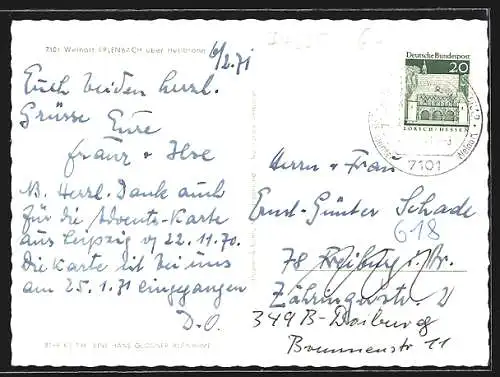 7101 Weinort ERLENBACH über Heilbronn
6/2.71
Euch beiden herzl.
Grüsse Eure
Franz + Ilse
NB. Herzl. Dank auch
für die Advents-Karte
aus Leipzig v. 22.11.70.
Die Karte ist bei uns
am 25.1.71 eingegangen
D.O.
Deutsche Bundespost
20
LORSCH/HESSEN
7101
Herrn + Frau
Ernst-Günter Schade
618
78 Freiburg i. Br.
Zähringerstr. 2
349 B-Doiburg
Brunnenstr 11